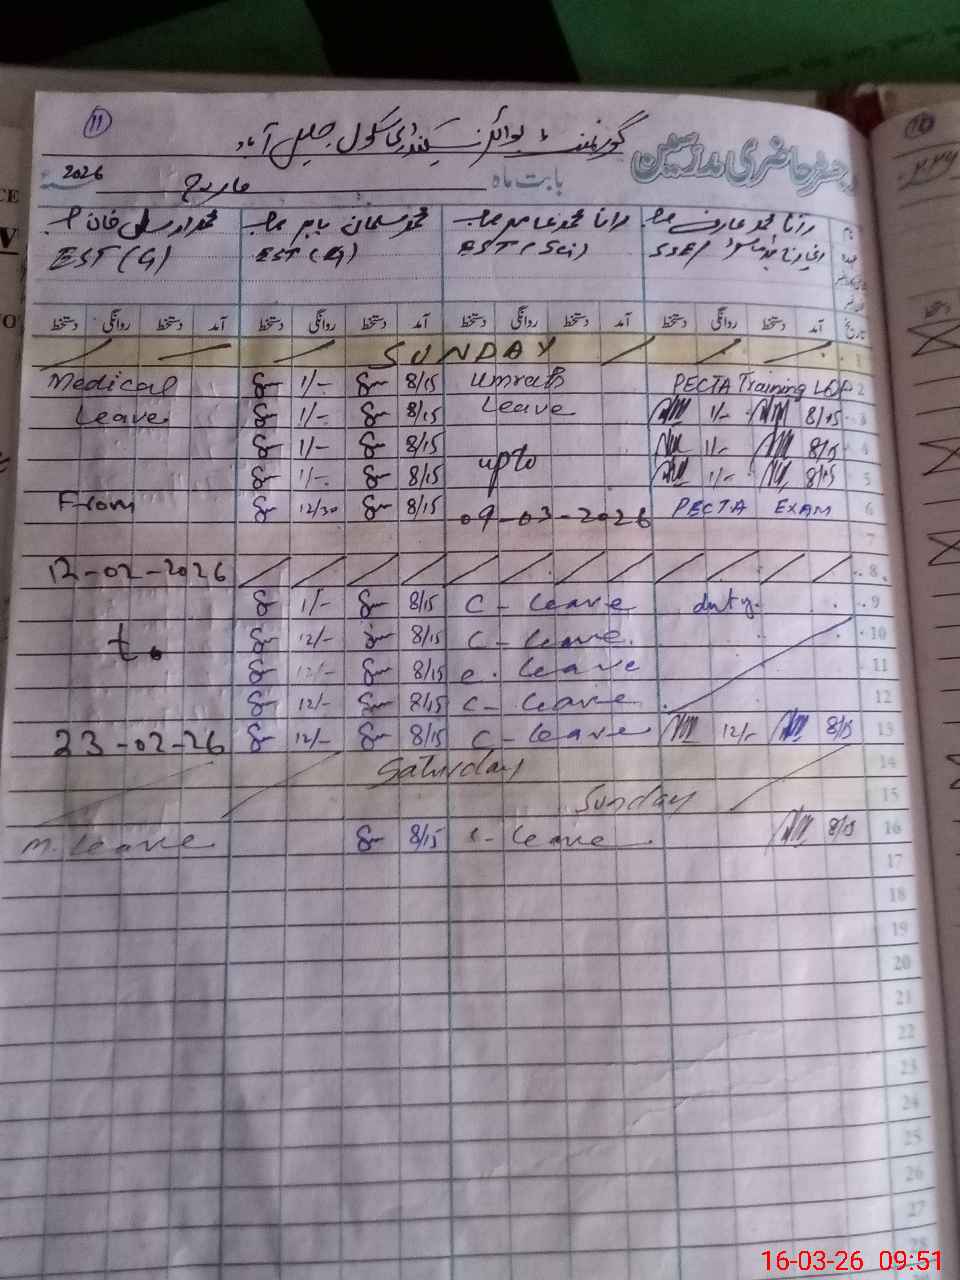 11
گورنمنٹ بوائز سیکنڈری سکول جلیل آباد
رجسٹر حاضری مدرسین
بابت ماہ مارچ 2026
رانا محمد عارف صاحب رانا محمد عامر صاحب محمد سلمان بابر صاحب محمد خان صاحب
SSE/ EST (Sci) EST (G) EST (G)
تاریخ آمد دستخط روانگی دستخط آمد دستخط روانگی دستخط آمد دستخط روانگی دستخط آمد دستخط روانگی دستخط
SUNDAY 1
Medical 1/- 8/15 Umrah PECTA Training 2
Leave 1/- 8/15 Leave 1/- 8/15 3
1/- 8/15 1/- 8/15 4
1/- 8/15 upto 1/- 8/15 5
From 12/30 8/15 09-03-2026 PECTA EXAM 6
7
12-02-2026 8
1/- 8/15 C-Leave duty. 9
to 12/- 8/15 C-Leave. 10
12/- 8/15 C-Leave 11
12/- 8/15 C-Leave 12
23-02-26 12/- 8/15 C-Leave 12/- 8/15 13
Saturday 14
Sunday 15
M.Leave 8/15 C-Leave 8/15 16
17
18
19
20
21
22
23
24
25
26
27
28
16-03-26 09:51